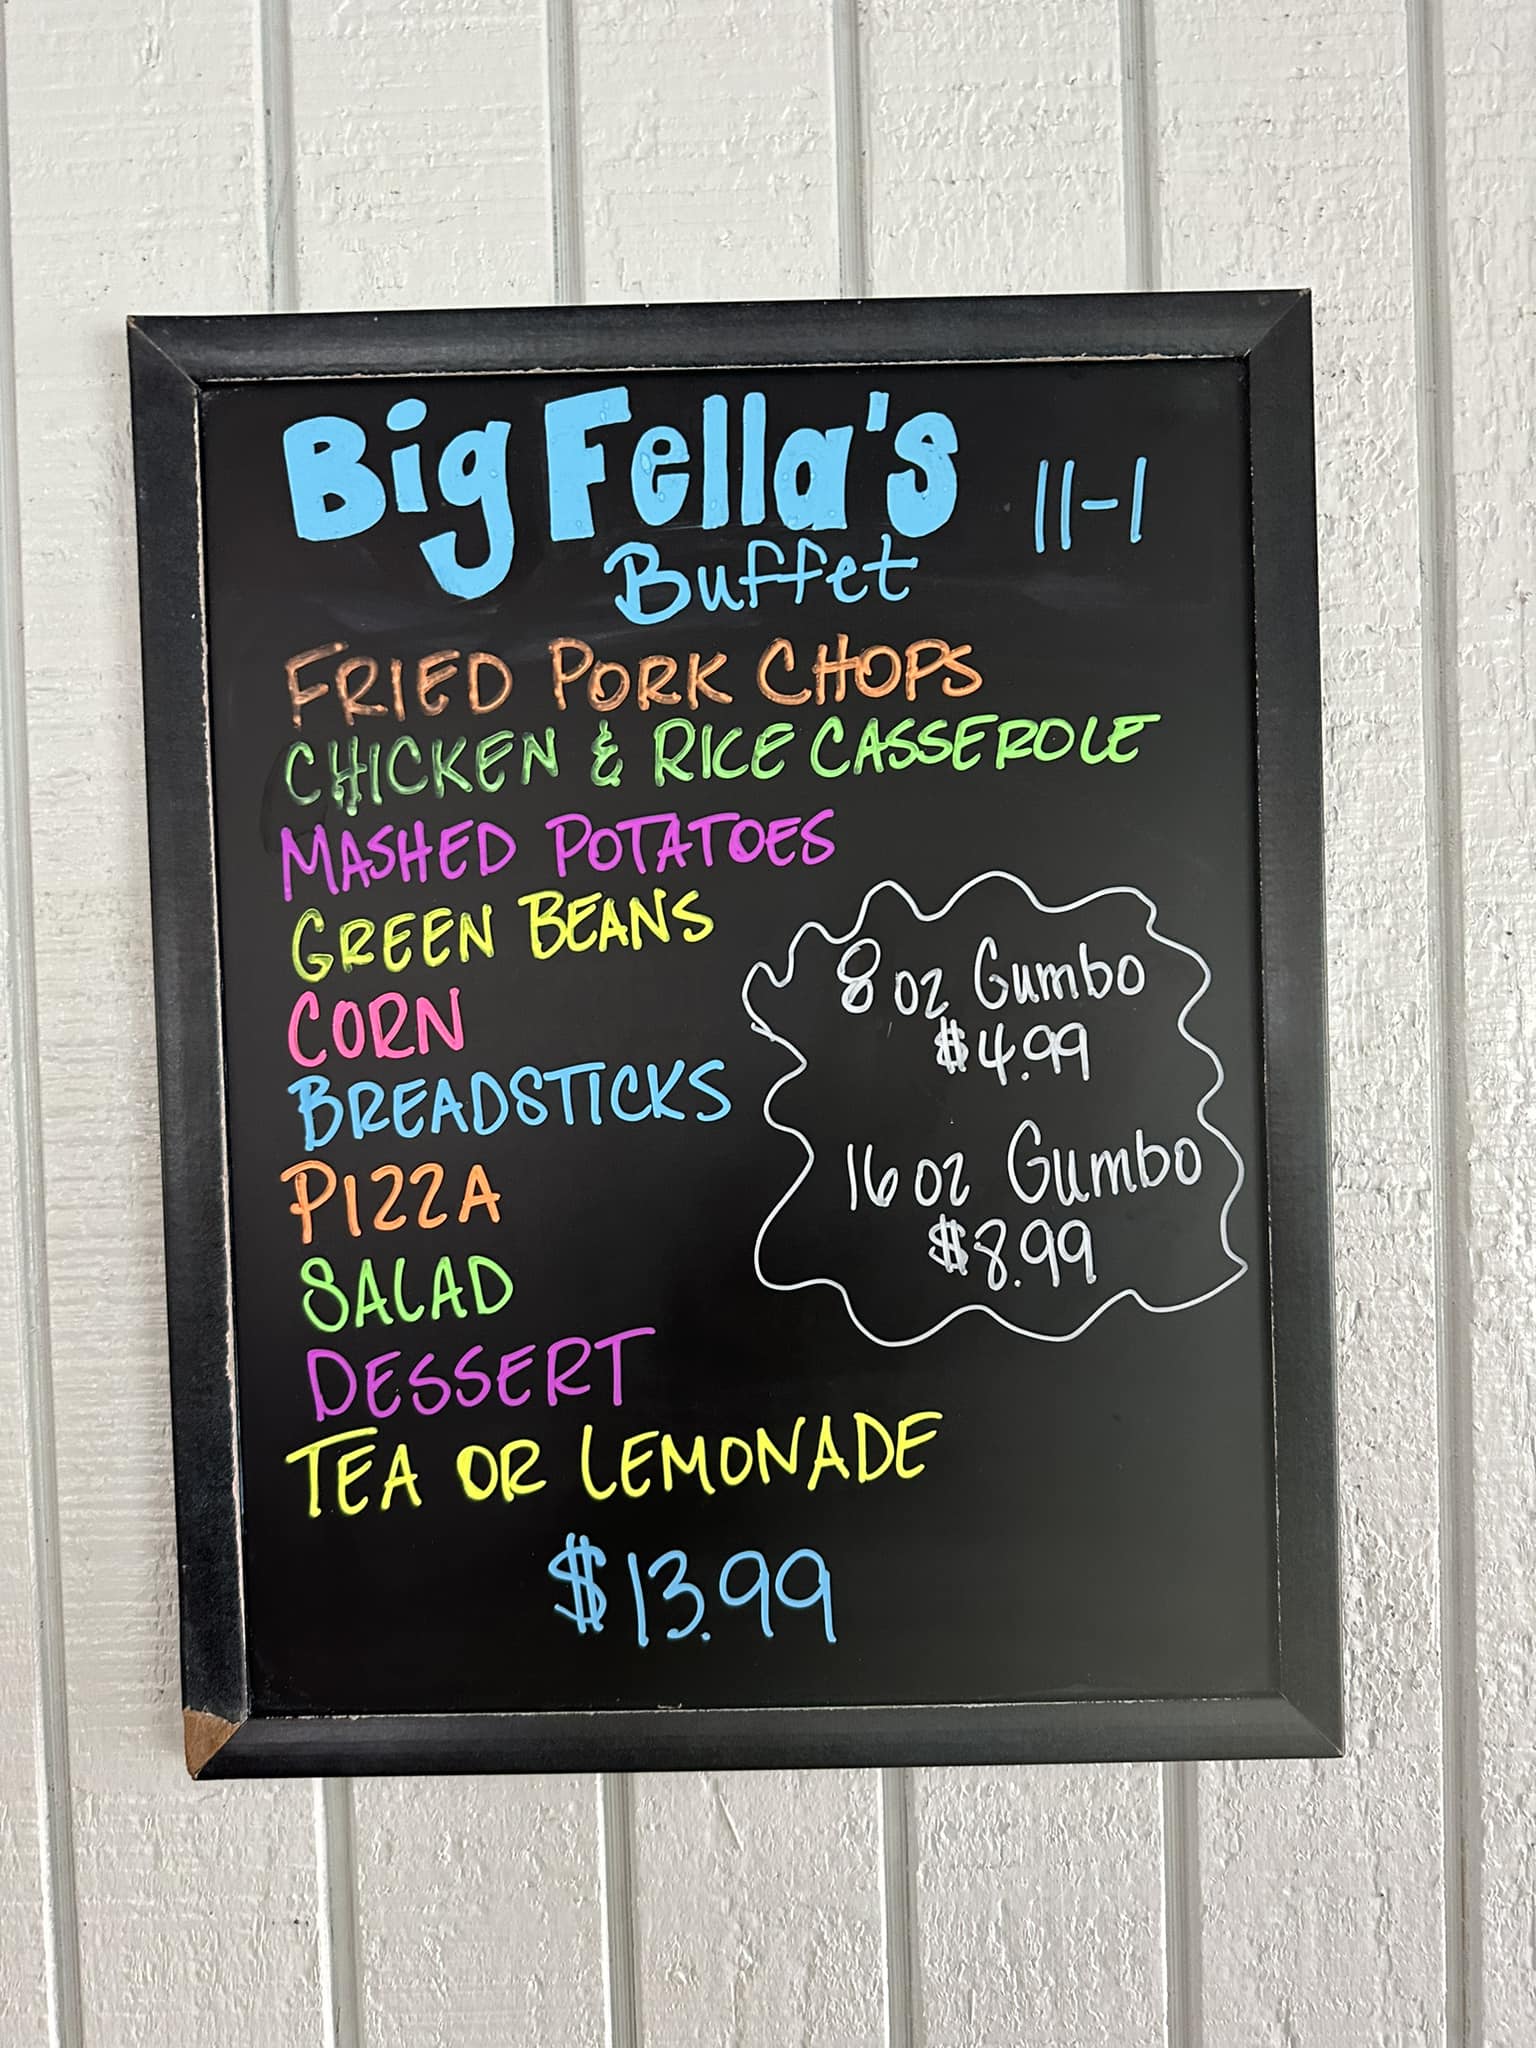 Big Fella's 11-1
Buffet
FRIED PORK CHOPS
CHICKEN & RICE CASSEROLE
MASHED POTATOES
GREEN BEANS
CORN
BREADSTICKS
PIZZA
SALAD
DESSERT
TEA OR LEMONADE
$13.99
8 oz Gumbo
$4.99
16 oz Gumbo
$8.99